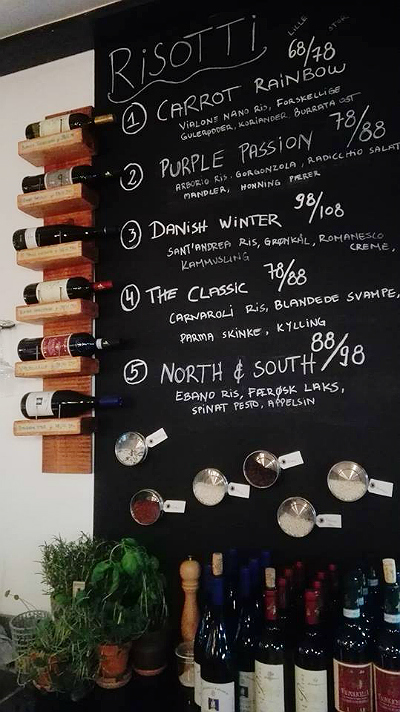 LILLE STOR
RISOTTI
68/78
1 CARROT RAINBOW
VIALONE NANO RIS, FORSKELLIGE
GULERØDDER, KORIANDER, BURRATA OST
78/88
2 PURPLE PASSION
ARBORIO RIS, GORGONZOLA, RADICCHIO SALAT
MANDLER, HONNING PÆRER
98/108
3 DANISH WINTER
SANT'ANDREA RIS, GRØNKÅL, ROMANESCO CREME,
KAMMUSLING
78/88
4 THE CLASSIC
CARNAROLI RIS, BLANDEDE SVAMPE,
PARMA SKINKE, KYLLING
88/98
5 NORTH & SOUTH
EBANO RIS, FÆRØSK LAKS,
SPINAT PESTO, APPELSIN